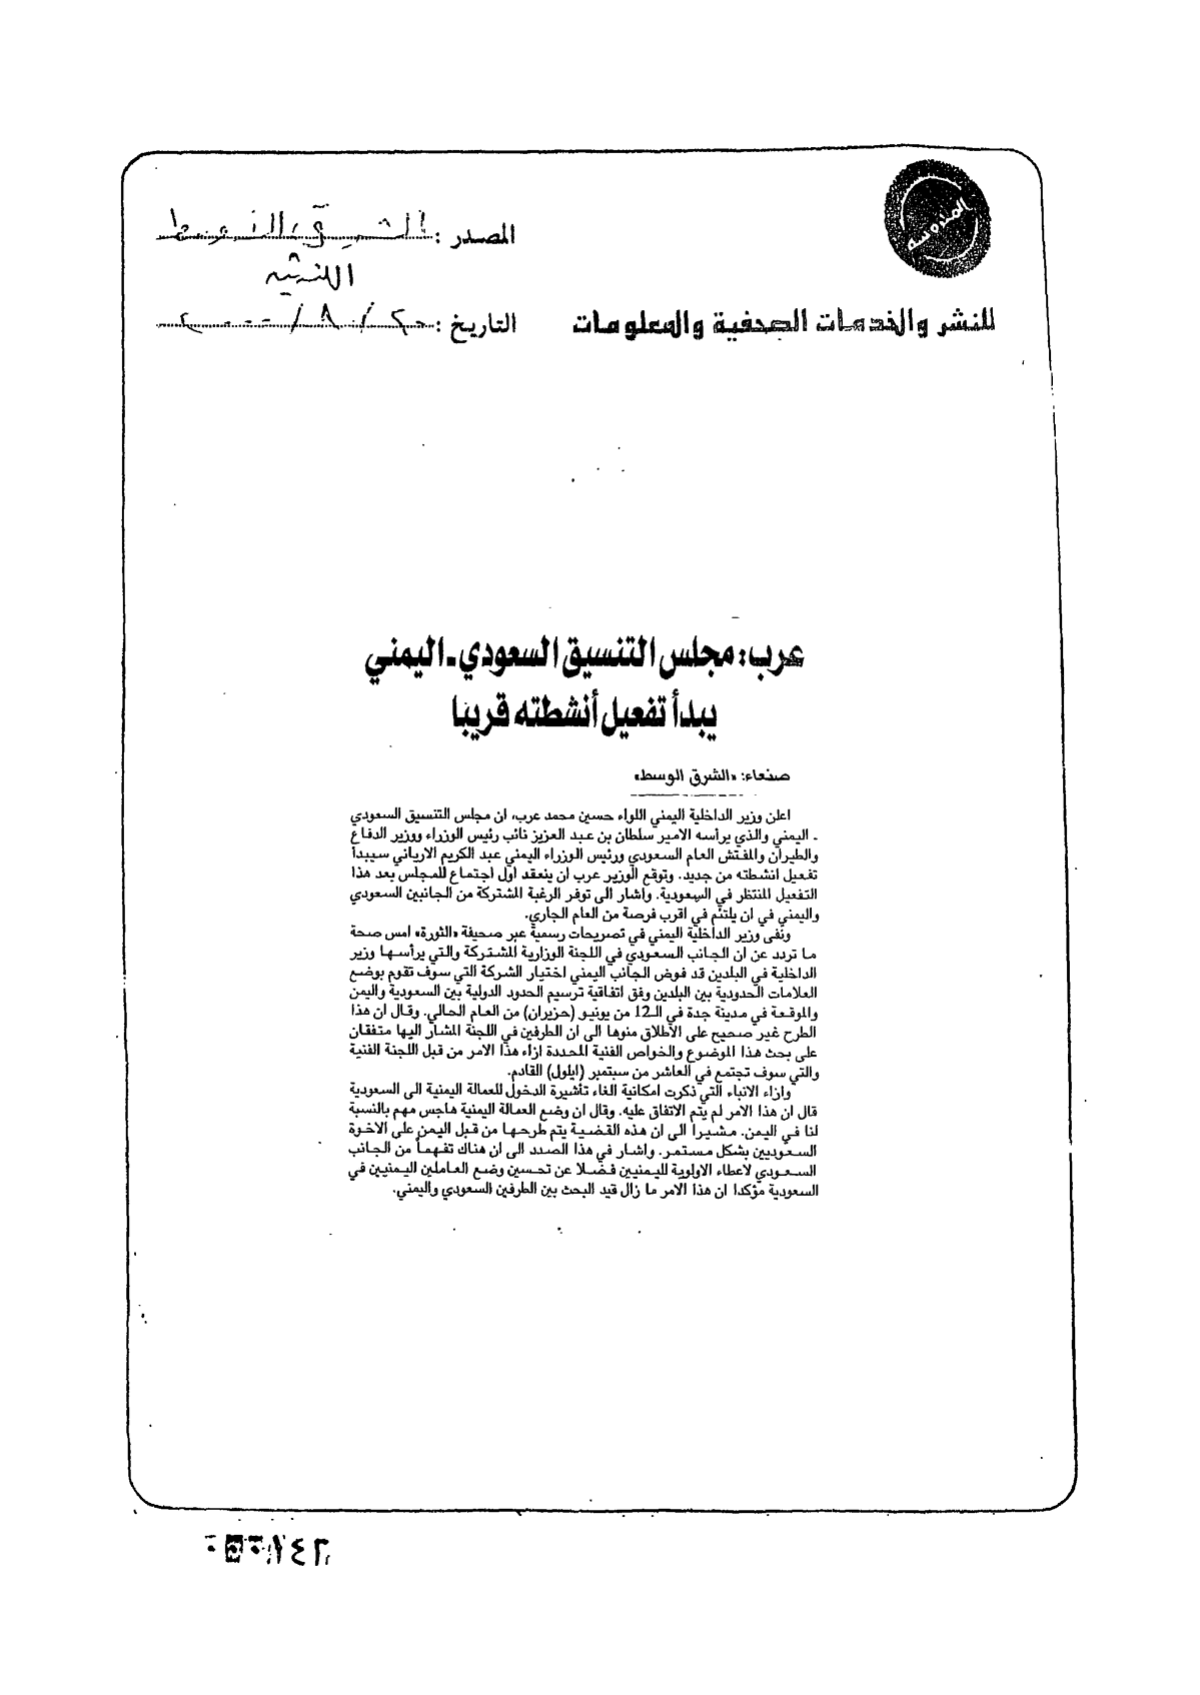 المصدر : الشرق الأوسط
اللندنية
للنشر والخدمات الصحفية والمعلومات
التاريخ :
عرب: مجلس التنسيق السعودي ـ اليمني
يبدأ تفعيل أنشطته قريبا
صنعاء: «الشرق الوسط»
اعلن وزير الداخلية اليمني اللواء حسين محمد عرب، ان مجلس التنسيق السعودي
ـ اليمني والذي يرأسه الامير سلطان بن عبد العزيز نائب رئيس الوزراء ووزير الدفاع
والطيران والمفتش العام السعودي ورئيس الوزراء اليمني عبد الكريم الارياني سيبدأ
تفعيل انشطته من جديد. وتوقع الوزير عرب ان ينعقد اول اجتماع للمجلس بعد هذا
التفعيل المنتظر في السعودية. واشار الى توفر الرغبة المشتركة من الجانبين السعودي
واليمني في ان يلتئم في اقرب فرصة من العام الجاري.
ونفى وزير الداخلية اليمني في تصريحات رسمية عبر صحيفة «الثورة» امس صحة
ما تردد عن ان الجانب السعودي في اللجنة الوزارية المشتركة والتي يرأسها وزير
الداخلية في البلدين قد فوض الجانب اليمني اختيار الشركة التي سوف تقوم بوضع
العلامات الحدودية بين البلدين وفق اتفاقية ترسيم الحدود الدولية بين السعودية واليمن
والموقعة في مدينة جدة في الـ12 من يونيو (حزيران) من العام الحالي. وقال ان هذا
الطرح غير صحيح على الاطلاق منوها الى ان الطرفين في اللجنة المشار اليها متفقان
على بحث هذا الموضوع والخواص الفنية المحددة ازاء هذا الامر من قبل اللجنة الفنية
والتي سوف تجتمع في العاشر من سبتمبر (ايلول) القادم.
وازاء الانباء التي ذكرت امكانية الغاء تأشيرة الدخول للعمالة اليمنية الى السعودية
قال ان هذا الامر لم يتم الاتفاق عليه. وقال ان وضع العمالة اليمنية هاجس مهم بالنسبة
لنا في اليمن. مشيرا الى ان هذه القضية يتم طرحها من قبل اليمن على الاخوة
السعوديين بشكل مستمر. واشار في هذا الصدد الى ان هناك تفهما من الجانب
السعودي لاعطاء الاولوية لليمنيين فضلا عن تحسين وضع العاملين اليمنيين في
السعودية مؤكدا ان هذا الامر ما زال قيد البحث بين الطرفين السعودي واليمني.